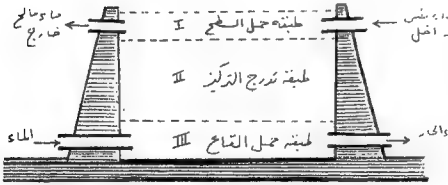 ماء مالح
خارج
I طبقة حمل السطح
داخل
II طبقة تدرج التركيز
الماء
III طبقة حمل القاع